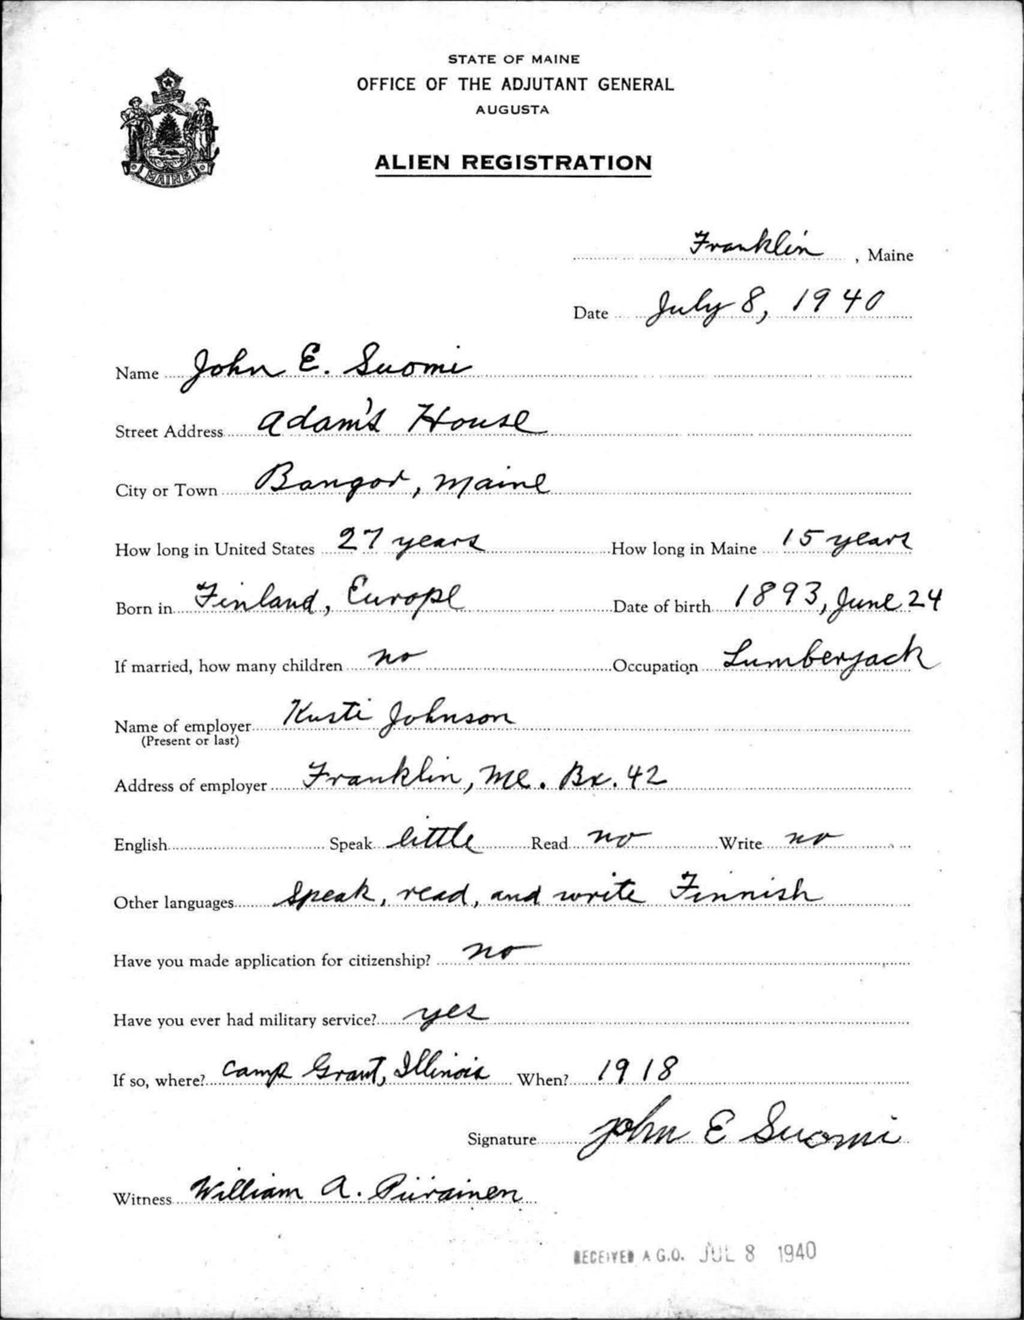 STATE OF MAINE
OFFICE OF THE ADJUTANT GENERAL
AUGUSTA
ALIEN REGISTRATION
MAINE
Franklin, Maine
Date July 8, 1940
Name John E. Suomi
Street Address Adam's House
City or Town Bangor, Maine
How long in United States 27 years How long in Maine 15 years
Born in Finland, Europe Date of birth 1893, June 24
If married, how many children no Occupation Lumberjack
Name of employer Kusti Johnson
(Present or last)
Address of employer Franklin, Me. Bx. 42
English Speak little Read no Write no
Other languages Speak, read, and write Finnish
Have you made application for citizenship? no
Have you ever had military service? yes
If so, where? Camp Grant, Illinois When? 1918
Signature John E Suomi
Witness William A. Piirainen
RECEIVED A.G.O. JUL 8 1940